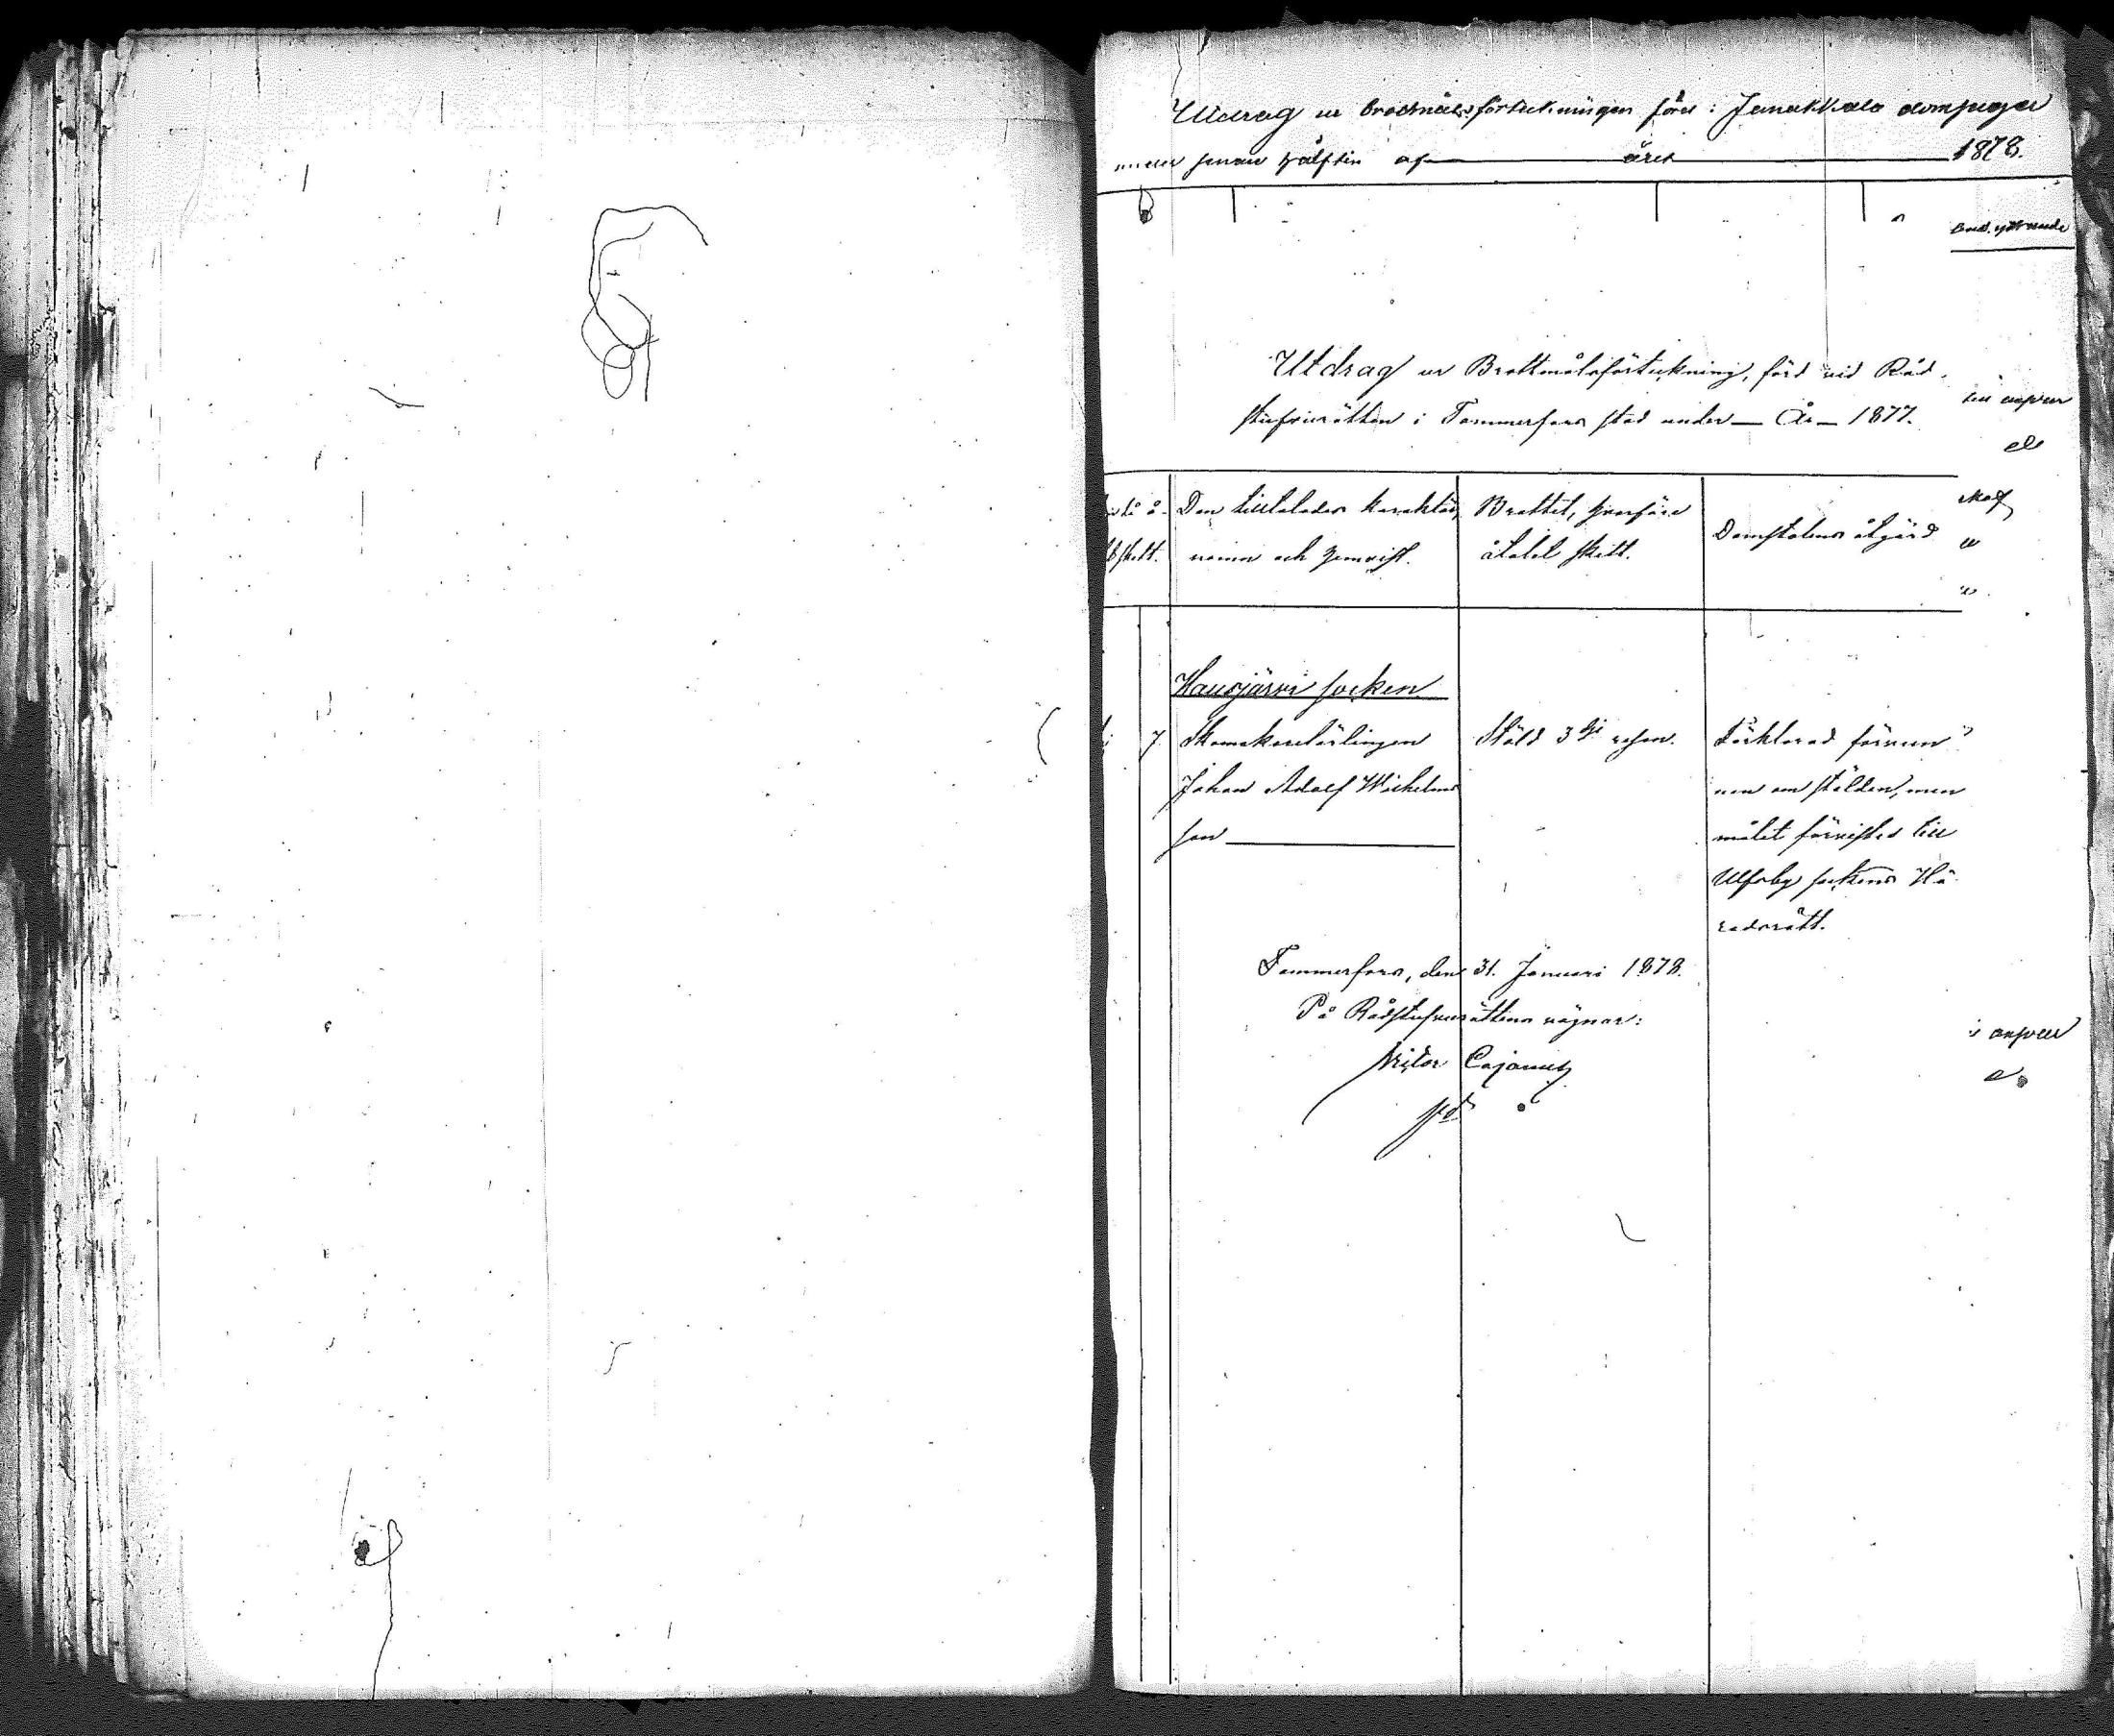 Utdrag ur brottmålsförteckningen förd i Janakkala domsaga
under senare hälften af året 1878.
Utdrag ur Brottmålsförteckning, förd vid Råd-
stufvurätten i Tammerfors stad under År 1877.
Den tilltalades karaktär,
namn och hemvist.
Brottet, hvarföre
åtalet skett.
Domstolens åtgärd
Hausjärvi socken
7
Skomakarelärlingen
Johan Adolf Wilhelms
son
Stöld 3dje resan.
Förklarad förvun
nen om stölden, men
målet förvistes till
Ulfsby sockens Hä
radsrätt.
Tammerfors, den 31. Januari 1878.
På Rådstufvurättens vägnar:
Victor Cajanus